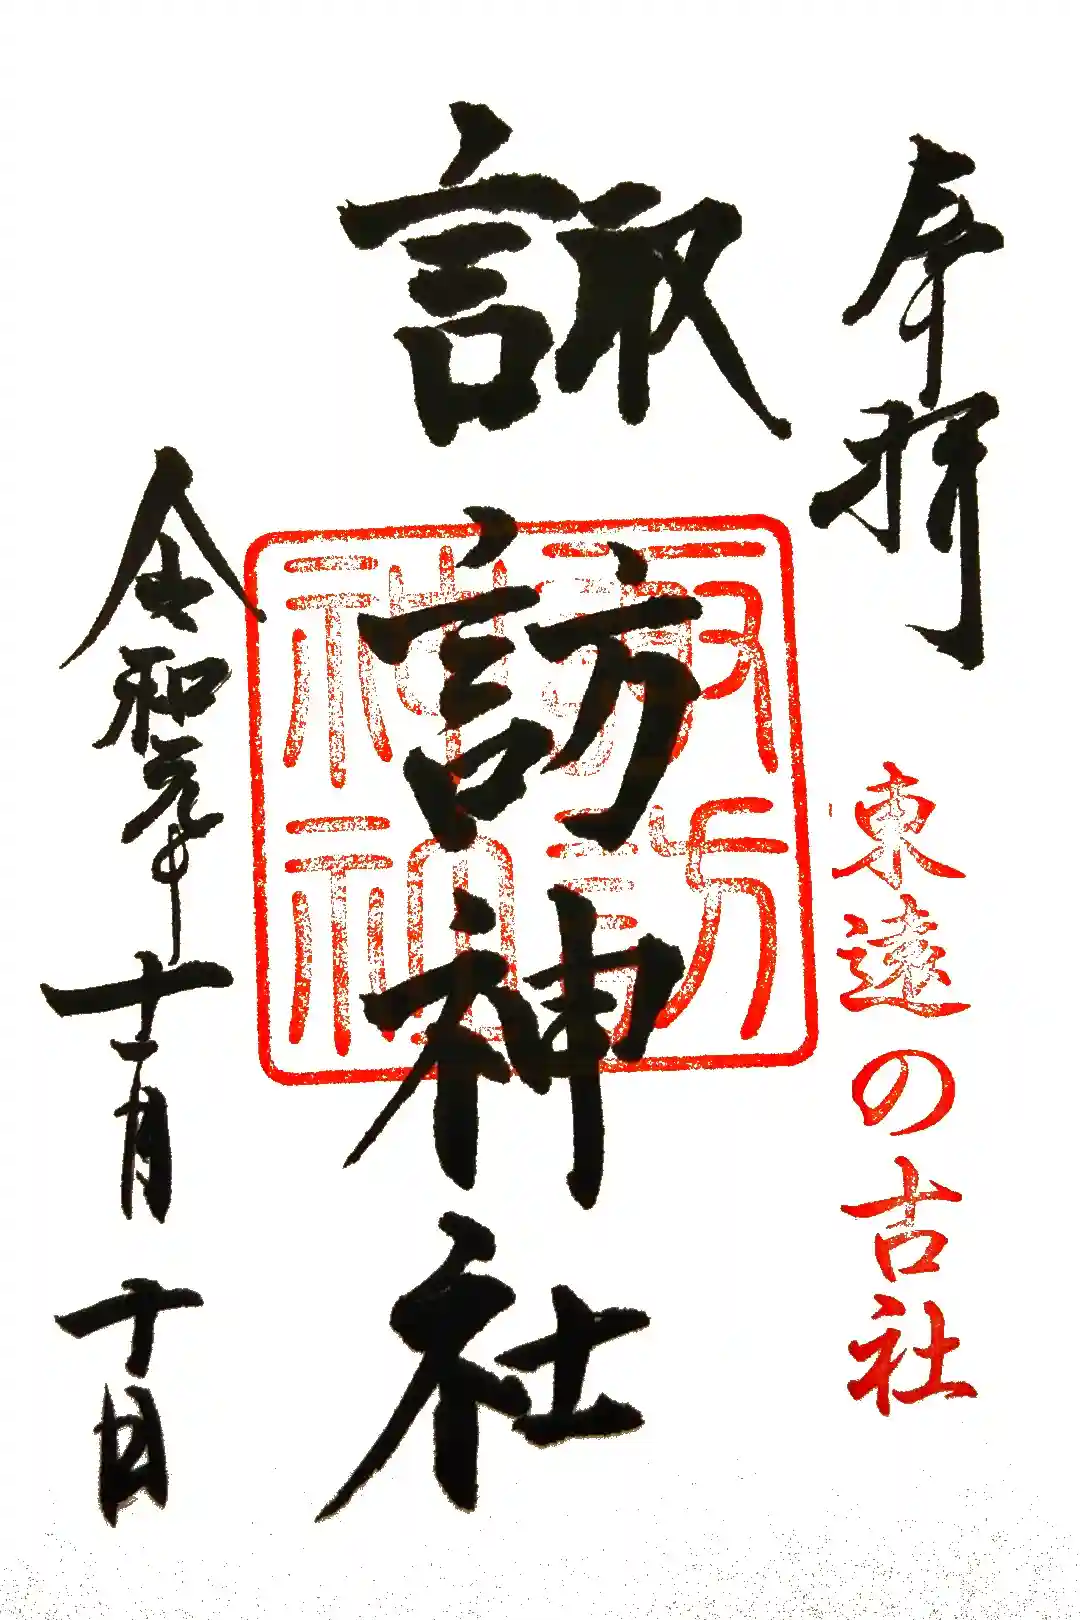 奉拝
東遠の古社
諏訪神社
諏訪
神
令和元年十一月十日